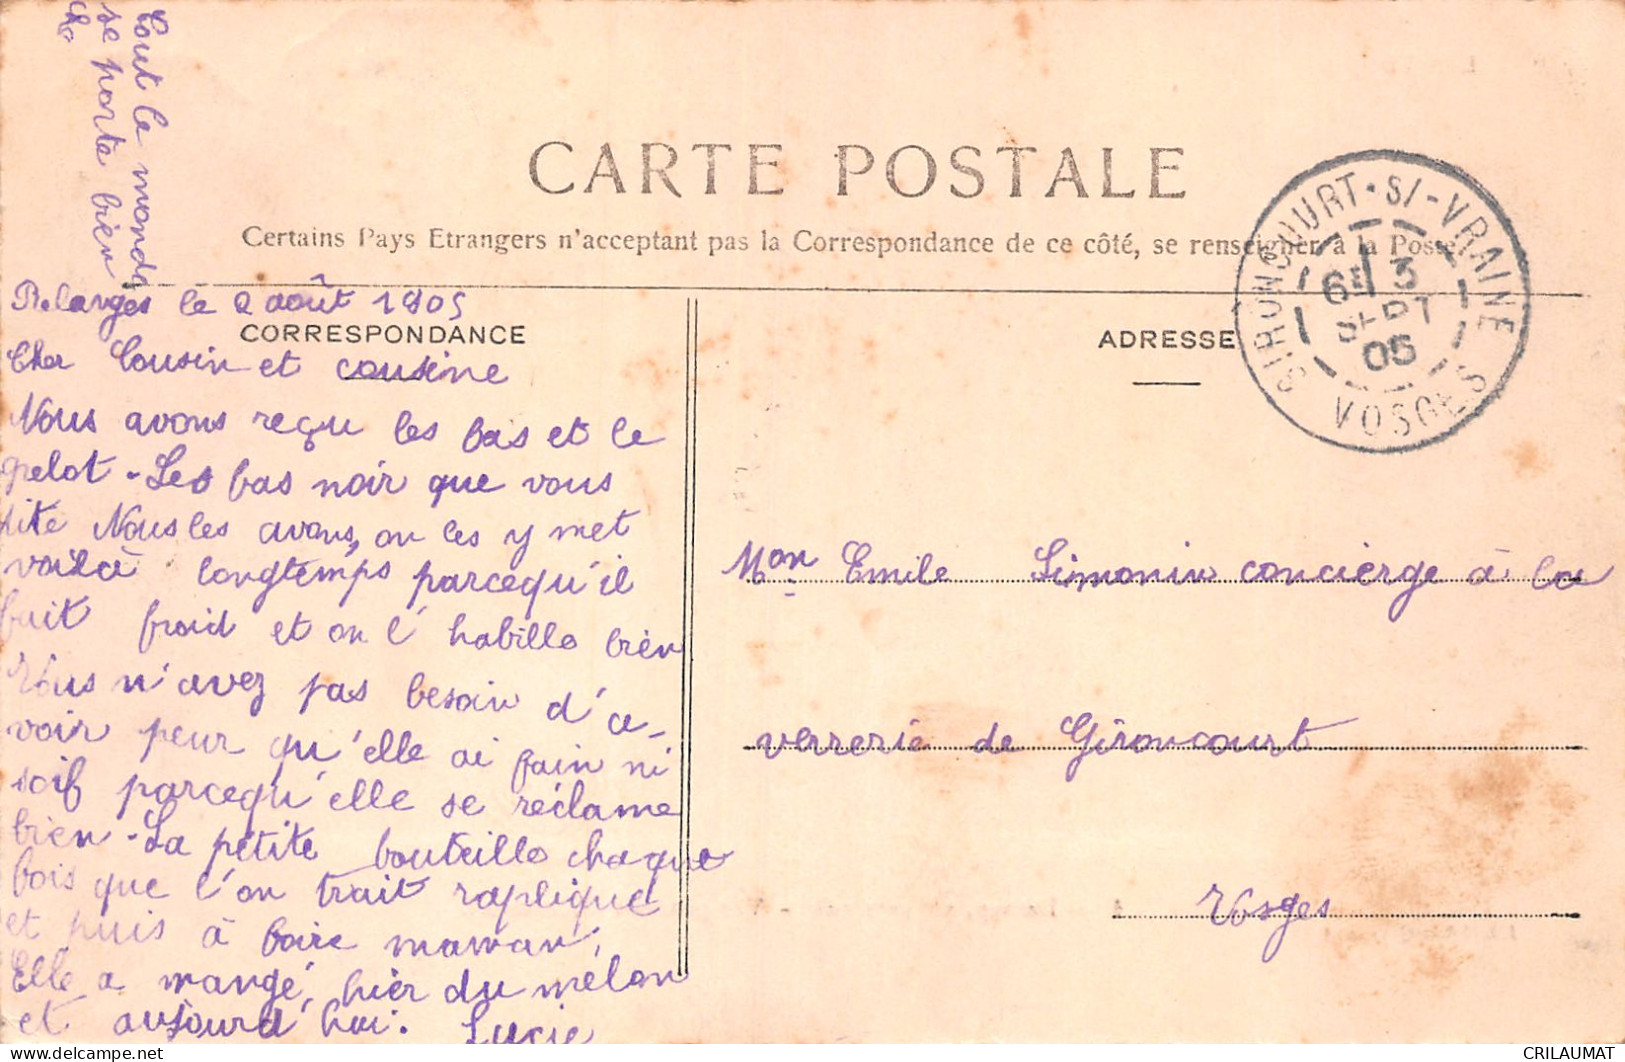 Tout le monde
se porte bien
CARTE POSTALE
Certains Pays Etrangers n'acceptant pas la Correspondance de ce côté, se renseigner à la Poste
Relanges le 2 août 1905
CORRESPONDANCE
Cher Cousin et cousine
Nous avons reçu les bas et le
pelot - Les bas noir que vous
dite Nous les avons, on les y met
voila longtemps parcequ'il
fait froid et on l'habille bien
Vous n'avez pas besoin d'a-
voir peur qu'elle ai fain ni
soif parcequ'elle se réclame
bien - La petite bouteille chaque
bois que l'on trait raplique
et puis à boire maman,
Elle a mangé hier du melon
et aujourd'hui. Lucie
ADRESSE
GIRONCOURT-S/-VRAINE
6E 3
SEPT
05
VOSGES
Mon Emile Simonin concierge à la
verrerie de Gironcourt
Vosges
CRILAUMAT